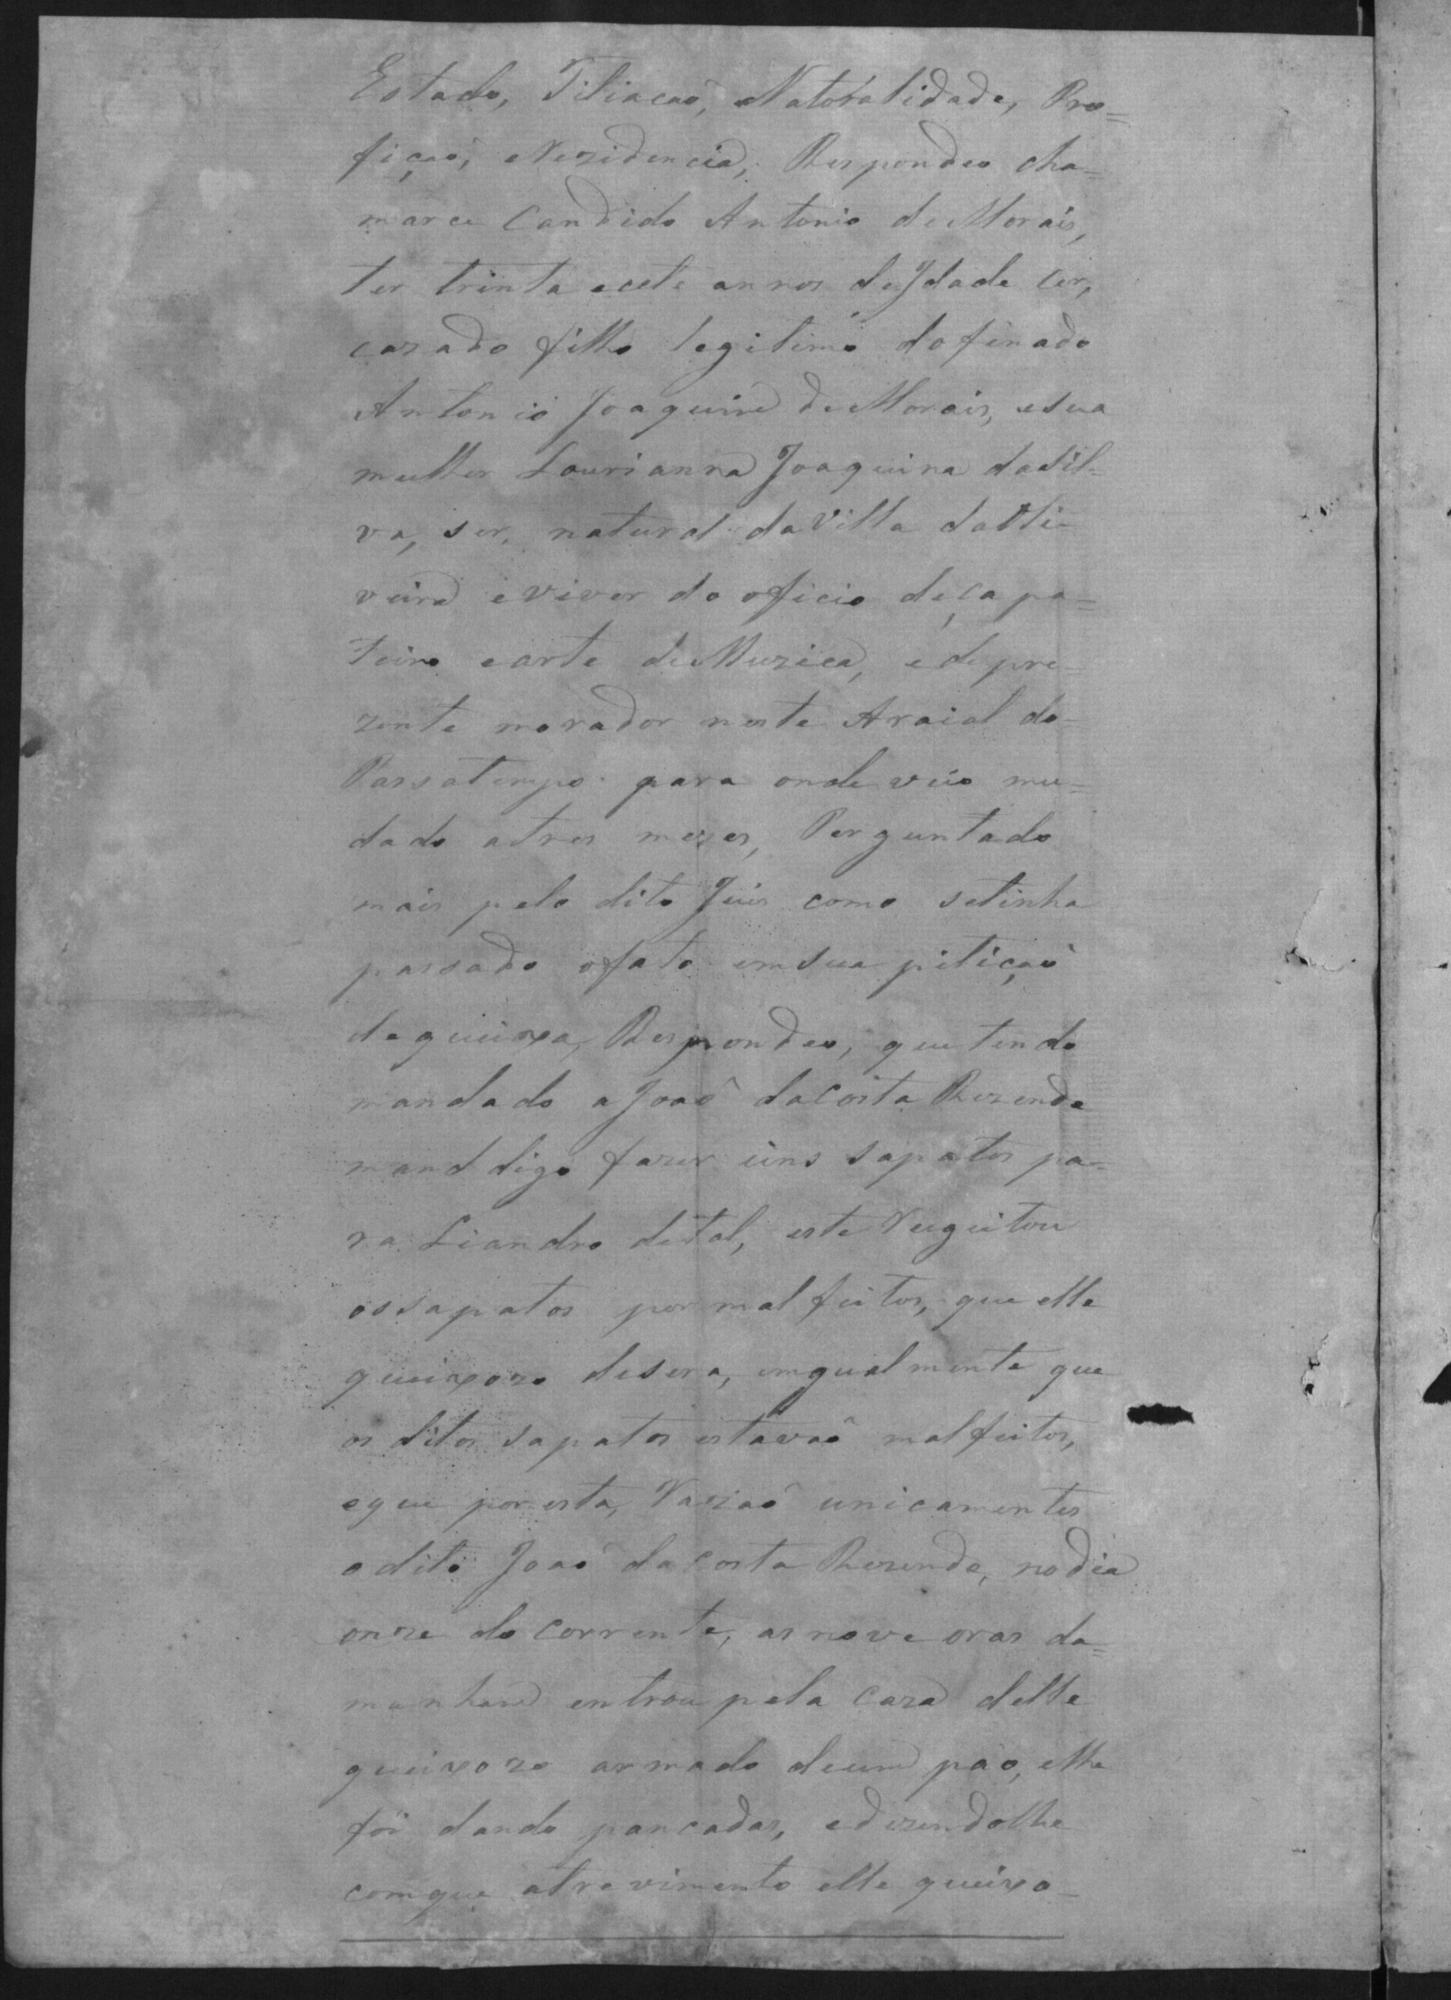 Estado, Filiacaõ, Natoralidade, Pro=
fiçaõ, e Rezidencia, Respondeo cha=
marce Candido Antonio de Morais,
ter trinta e cete annos de Idade cer,
cazado filho legitimo do finado
Antonio Joaquim de Morais, e sua
mulher Lourianna Joaquina da Sil=
va, ser, natural da Villa da Oli-
veira e viver do oficio de çapa=
teiro e arte de Muzica, e de pre=
zente morador neste Araial do
Passatempo para onde veio mu=
dado a tres mezes, Perguntado
mais pelo dito Juis como se tinha
passado o fato em sua pitiçaõ
de queixa, Respondeo, que tendo
mandado a Joaõ da Costa Rezende
mand digo fazer uns sapatos pa=
ra Liandro de tal, este Reugeitou
os sapatos por mal feitos, que elle
queixozo disera, emgualmente que
os ditos sapatos estavaõ mal feitos,
e que por esta, Razaõ unicamentes
o dito Joaõ da Costa Rezende, no dia
onze do corrente, as nove oras da=
manham entrou pela caza delle
queixozo armado de um páo, elhe
foi dando pancadas, e dizendolhe
com que atrevimento elle queixo=